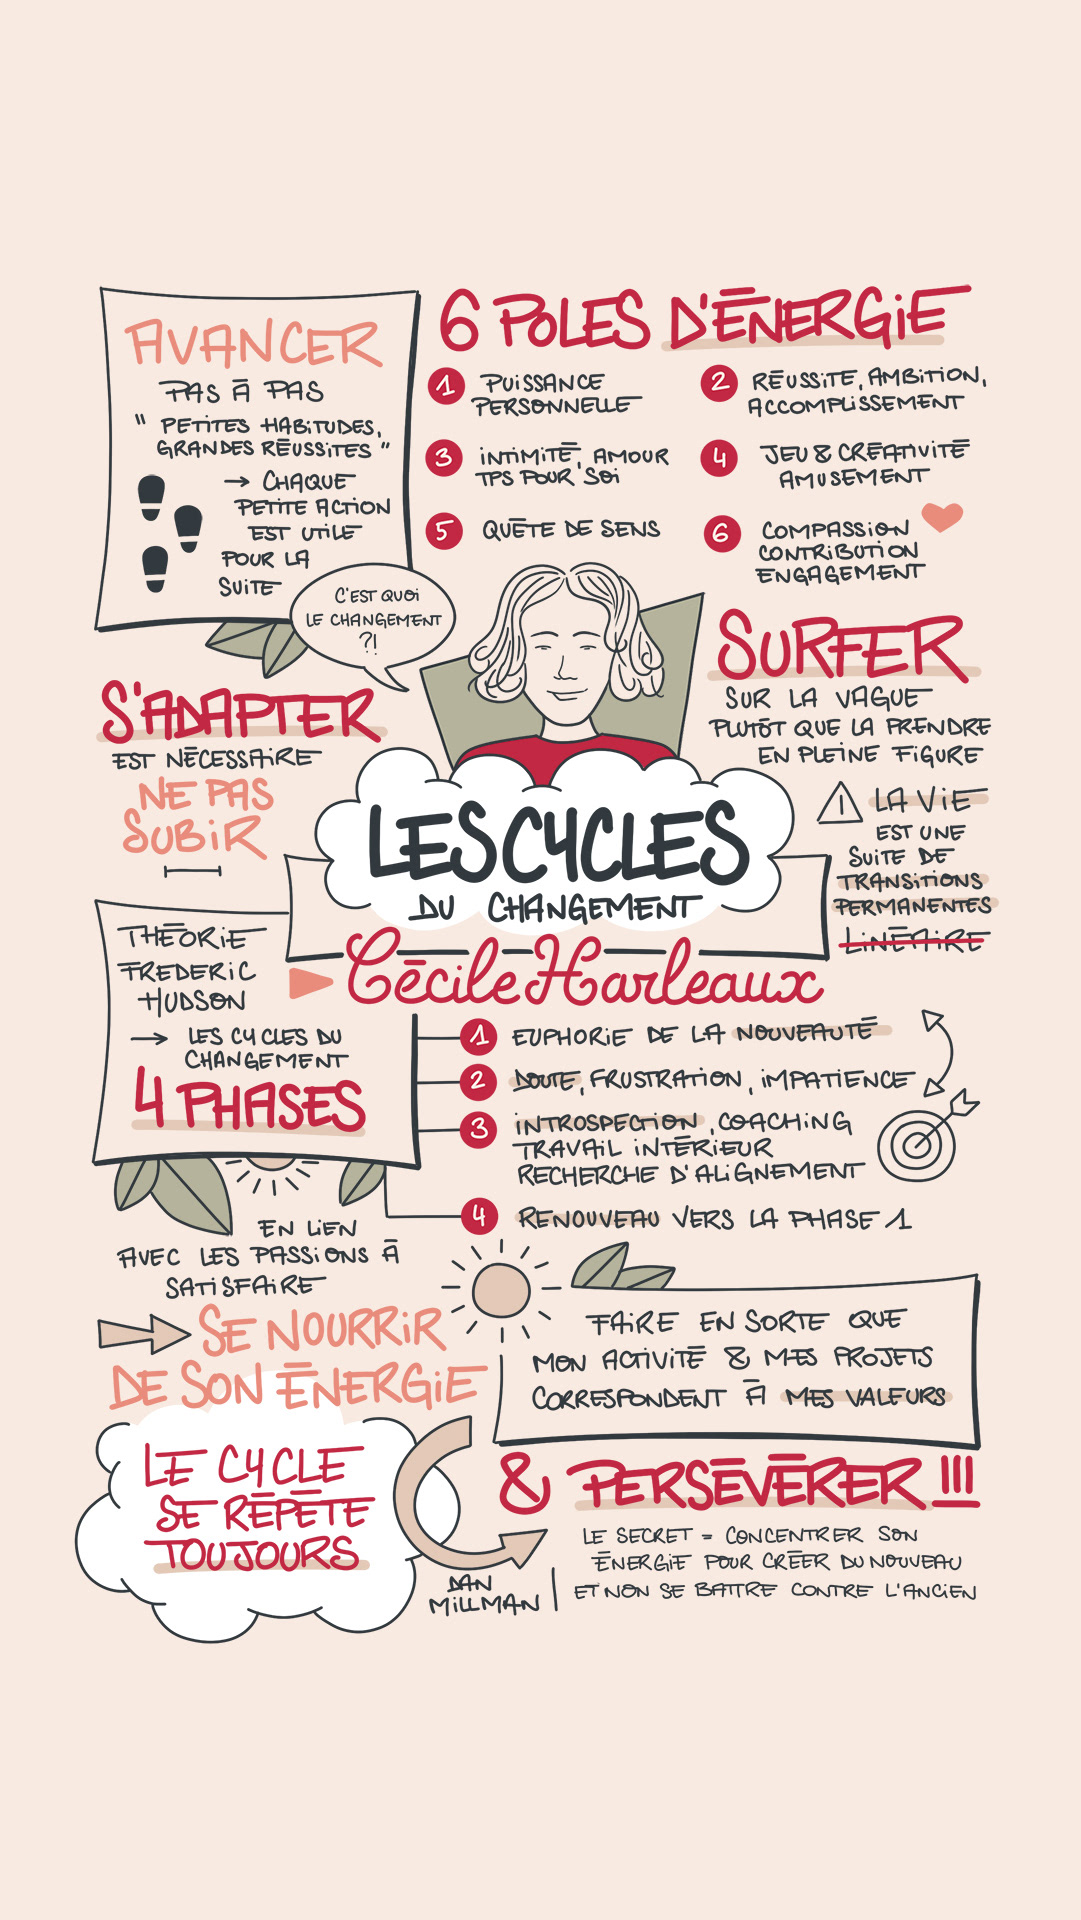 AVANCER
PAS À PAS
" PETITES HABITUDES,
GRANDES RÉUSSITES "
→ CHAQUE
PETITE ACTION
EST UTILE
POUR LA
SUITE
6 POLES D'ÉNERGIE
1 PUISSANCE
PERSONNELLE
2 RÉUSSITE, AMBITION,
ACCOMPLISSEMENT
3 INTIMITÉ, AMOUR
TPS POUR SOI
4 JEU & CRÉATIVITÉ
AMUSEMENT
5 QUÊTE DE SENS
6 COMPASSION
CONTRIBUTION
ENGAGEMENT
C'EST QUOI
LE CHANGEMENT
?!
S'ADAPTER
EST NÉCESSAIRE
NE PAS
SUBIR
SURFER
SUR LA VAGUE
PLUTÔT QUE LA PRENDRE
EN PLEINE FIGURE
! LA VIE
EST UNE
SUITE DE
TRANSITIONS
PERMANENTES
LINÉAIRE
LES CYCLES
DU CHANGEMENT
Cécile Harleaux
THÉORIE
FREDERIC
HUDSON
→ LES CYCLES DU
CHANGEMENT
4 PHASES
1 EUPHORIE DE LA NOUVEAUTÉ
2 DOUTE, FRUSTRATION, IMPATIENCE
3 INTROSPECTION, COACHING
TRAVAIL INTÉRIEUR
RECHERCHE D'ALIGNEMENT
4 RENOUVEAU VERS LA PHASE 1
EN LIEN
AVEC LES PASSIONS À
SATISFAIRE
SE NOURRIR
DE SON ÉNERGIE
FAIRE EN SORTE QUE
MON ACTIVITÉ & MES PROJETS
CORRESPONDENT À MES VALEURS
LE CYCLE
SE RÉPÈTE
TOUJOURS
& PERSÉVÉRER !!!
LE SECRET = CONCENTRER SON
ÉNERGIE POUR CRÉER DU NOUVEAU
ET NON SE BATTRE CONTRE L'ANCIEN
DAN
MILLMAN